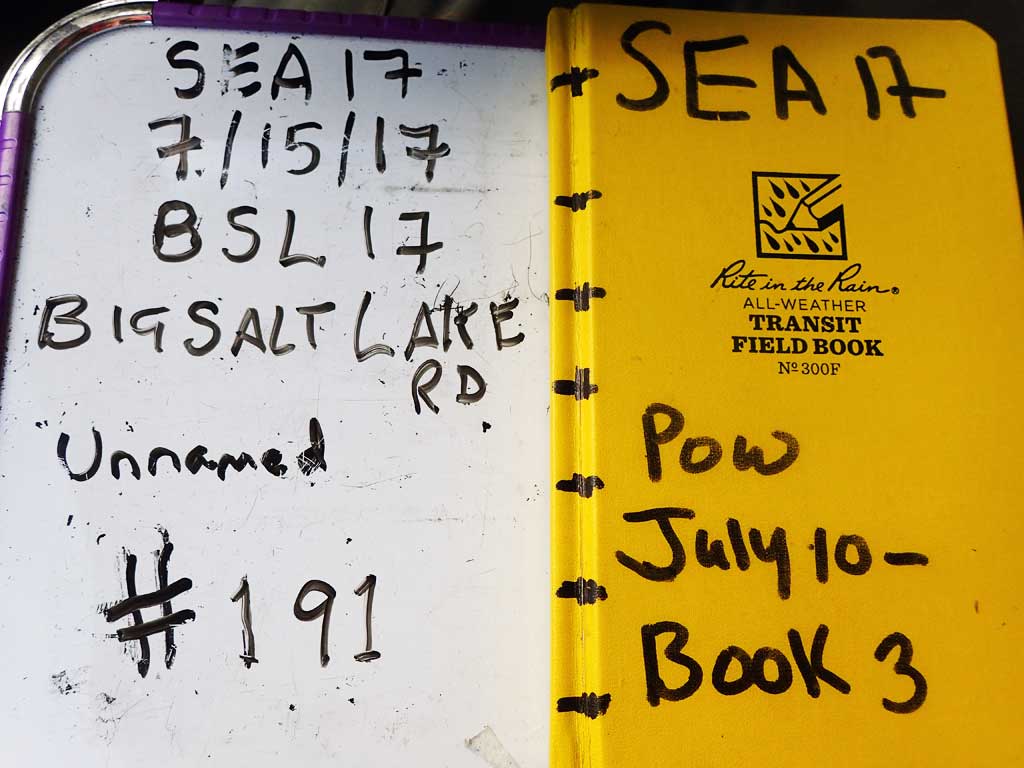 SEA 17
7/15/17
BSL 17
BIG SALT LAKE
RD
Unnamed
#191
SEA 17
Rite in the Rain®
ALL-WEATHER
TRANSIT
FIELD BOOK
Nº 300F
POW
July 10-
BOOK 3